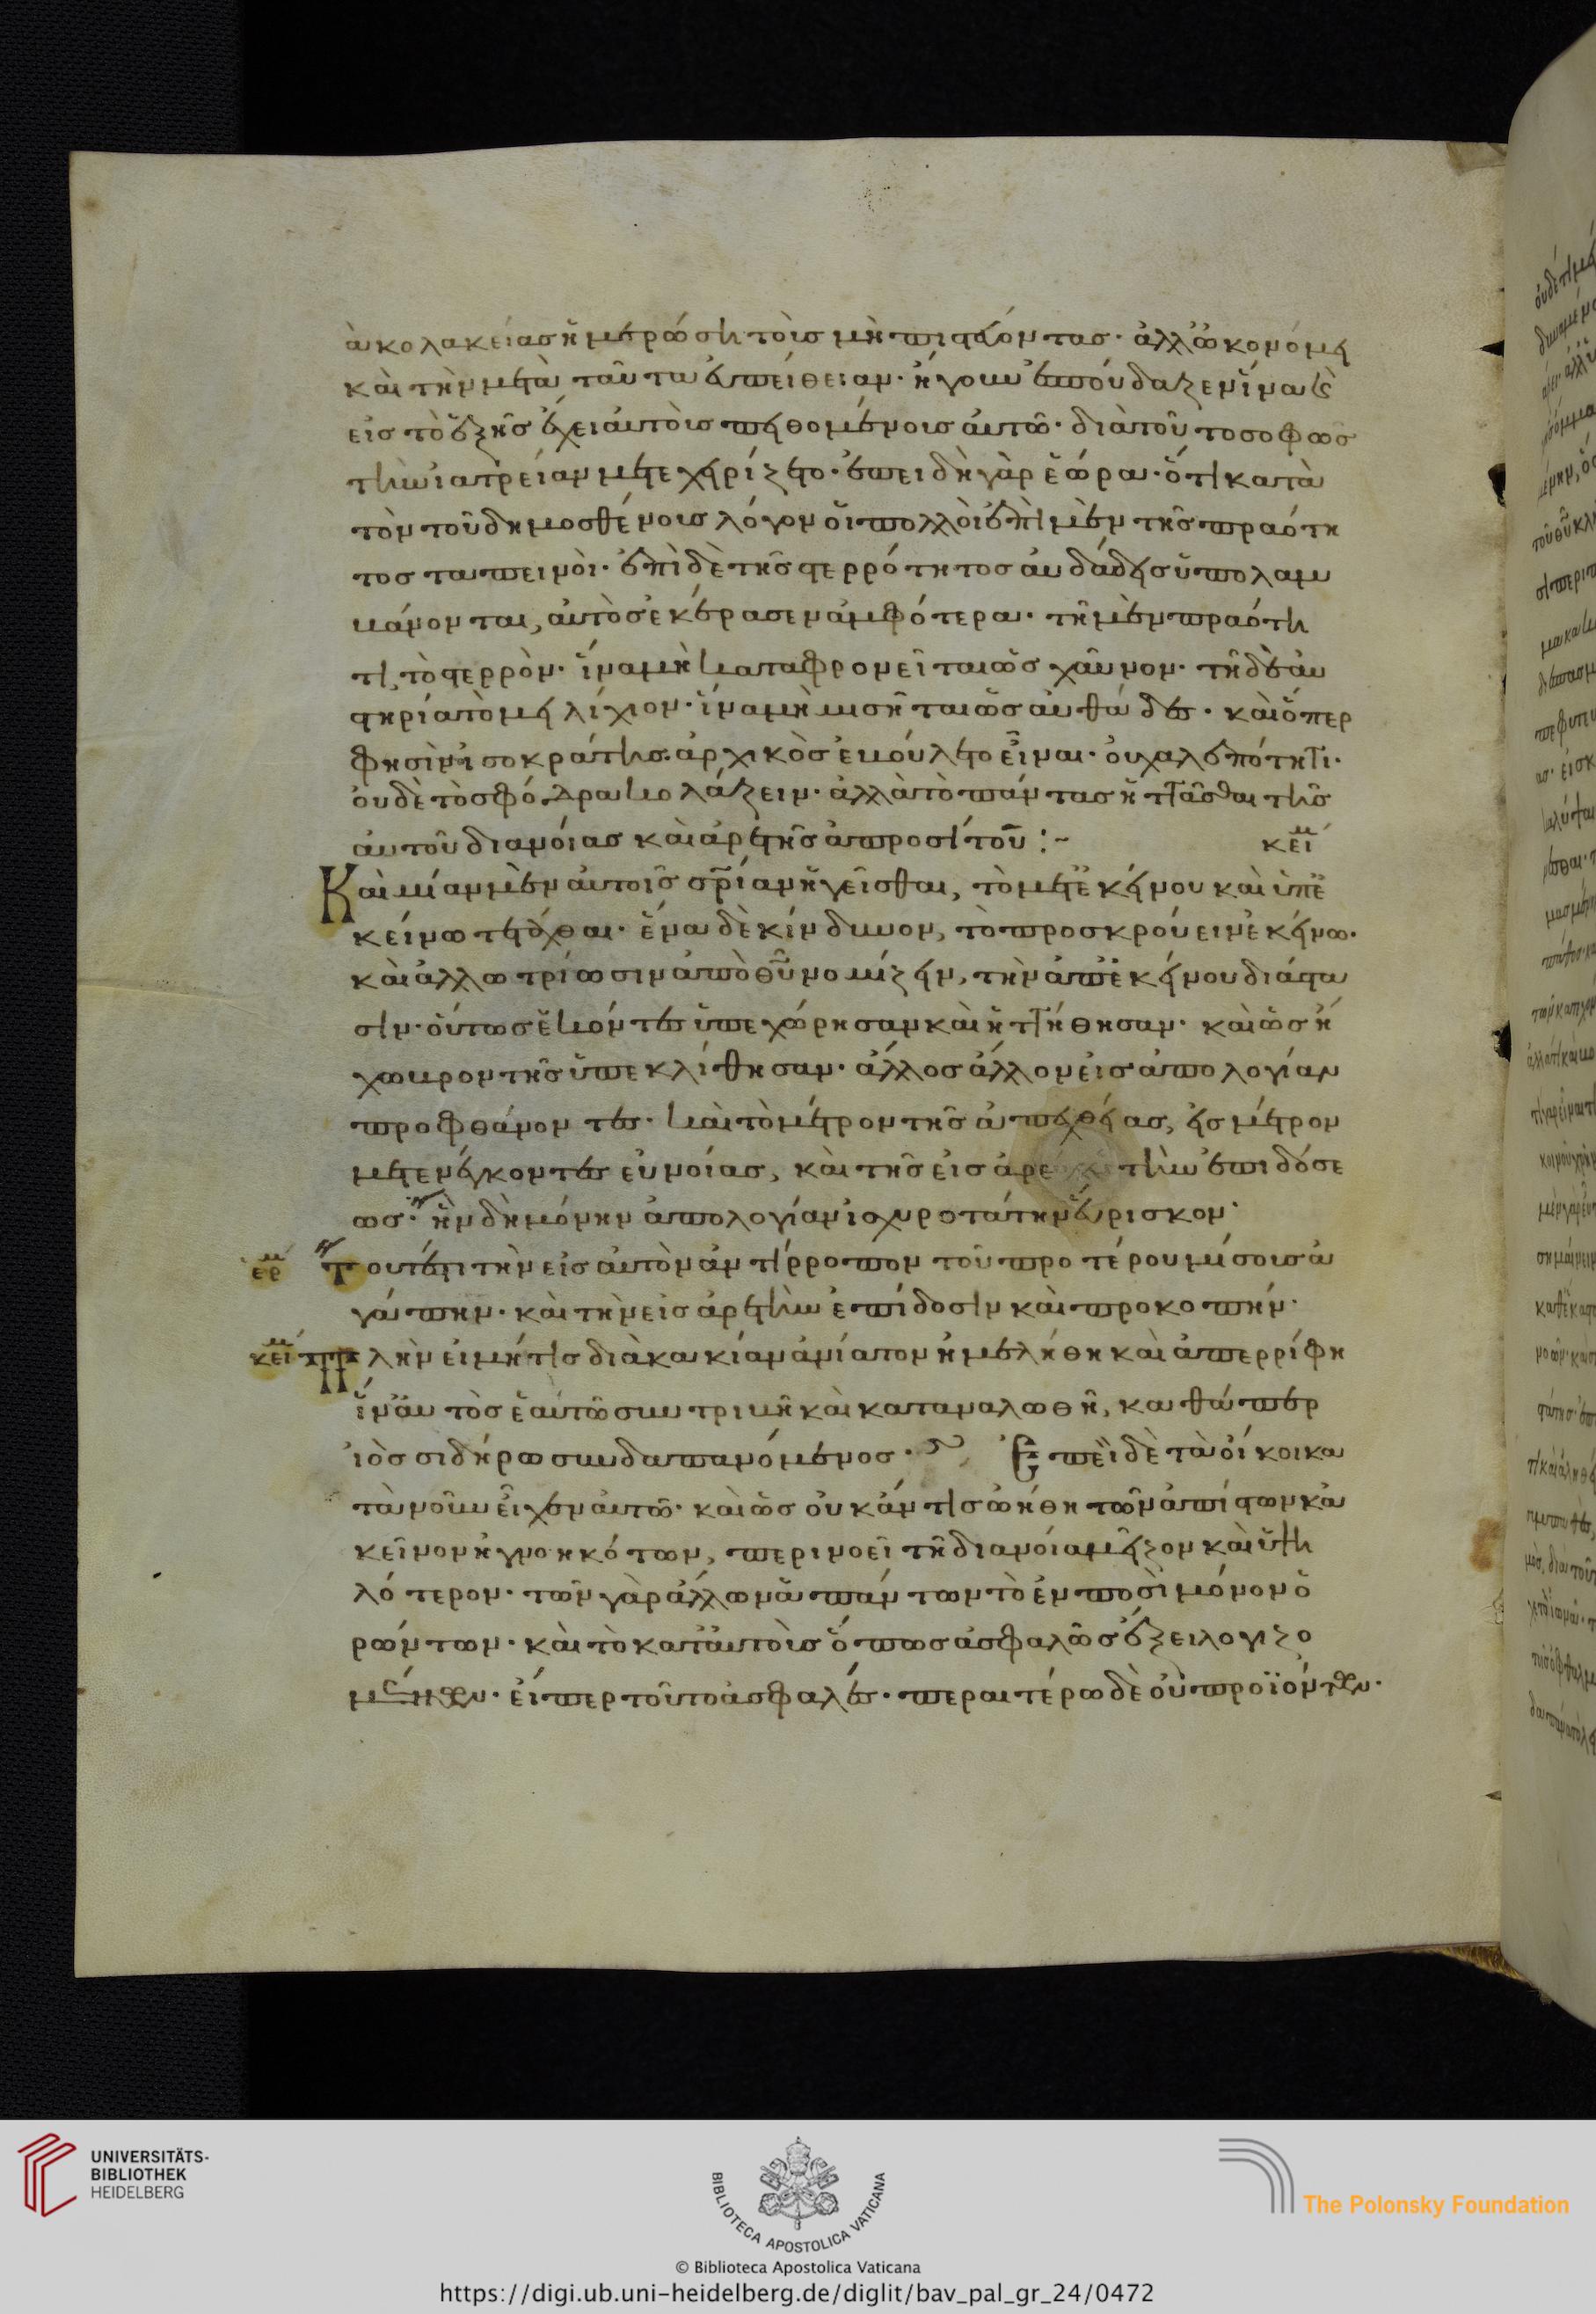 ὰ κολακείας ἡμερώση τοὺς μὴ πιστεύοντας· ἀλλ᾽ ὠκονόμει
καὶ τὴν μετὰ ταῦτα εὐπείθειαν· ἤγουν ἐσπούδαζεν ἵνα καὶ
εἰς τὸ ἑξῆς ἔχει αὐτοὺς πειθομένους αὐτῶ· διὰ τοῦτο σοφῶς
τὴν ἰατρείαν μετεχειρίζετο· ἐπειδὴ γὰρ ἑώρα· ὅτι κατὰ
τὸν τοῦ δημοσθένους λόγον οἱ πολλοὶ ἐπὶ μὲν τῆς πραότη
τος ταπεινοὶ· ἐπὶ δὲ τῆς στερρότητος αὐθάδεις ὑπολαμ
βάνονται, αὐτὸς ἐκέρασεν ἀμφότερα· τῆ μὲν πραότη
τι τὸ στερρὸν· ἵνα μὴ καταφρονεῖται ὡς χαῦνον· τῆ δὲ αὐ
στηρία τὸ μειλίχιον· ἵνα μὴ μισῆται ὡς αὐθάδες· καὶ ὅπερ
φησὶν ἰσοκράτης· ἀρχικὸς ἐβούλετο εἶναι· οὐ χαλεπότητι·
οὐδὲ τὸ σφόδρα κολάζειν· ἀλλὰ τὸ πάντας ἡττᾶσθαι τῆς
αὐτοῦ διανοίας καὶ ἀρετῆς ἀπροσίτου :~ κείμ
Καὶ μίαν μὲν αὐτοῖς σωτηρίαν ἡγεῖσθαι, τὸ μετ᾽ ἐκείνου καὶ ὑπ᾽ ἐ
κείνω τετάχθαι· ἕνα δὲ κίνδυνον, τὸ προσκρούειν ἐκείνω·
καὶ ἀλλωτρίωσιν ἀπὸ θυ νομίζειν, τὴν ἀπ᾽ ἐκείνου διάστα
σιν· οὕτως ἑκόντες ὑπεχώρησαν καὶ ἡττήθησαν· καὶ ὡς ἤ
χω βροντῆς ὑπεκλίθησαν· ἄλλος ἄλλον εἰς ἀπολογίαν
προφθάνοντες· καὶ τὸ μέτρον τῆς ἀπεχθείας, εἰς μέτρον
μετενεγκόντες εὐνοίας, καὶ τῆς εἰς ἀρετὴν ἐπιδόσε
ως· ἣν δὴ μόνην ἀπολογίαν ἰσχυροτάτην εὕρισκον·
ερμ Τουτέστι τὴν εἰς αὐτὸν ἀντίρροπον τοῦ προτέρου μίσους ἀ
γάπην· καὶ τὴν εἰς ἀρετὴν ἐπίδοσιν καὶ προκοπήν·
κείμ Πλὴν εἰ μή τις διὰ κακίαν ἀνίατον ἠμελήθη καὶ ἀπερρίφη
ἵν᾽ αὐτὸς ἑαυτῶ συντριβῆ καὶ καταναλωθῆ, καθάπερ
ἰὸς σιδήρω συνδαπανόμενος· Ἐπεὶ δὲ τὰ οἴκοι κα
τὰ νοῦν εἶχεν αὐτῶ· καὶ ὡς οὐκ ἄν τις ὠήθη τῶν ἀπίστων κἀ
κεῖνον ἠγνοηκότων, περινοεῖ τῆ διανοία μεῖζον καὶ ὑψη
λότερον· τῶν γὰρ ἄλλων ἁπάντων τὸ ἐν ποσὶ μόνον ὁ
ρώντων· καὶ τὸ κατ᾽ αὐτοὺς ὅπως ἀσφαλῶς ἕξει λογιζο
μένων· εἴπερ τοῦτο ἀσφαλές· περαιτέρω δὲ οὐ προϊόντων·
UNIVERSITÄTS-
BIBLIOTHEK
HEIDELBERG
BIBLIOTECA APOSTOLICA VATICANA
The Polonsky Foundation
© Biblioteca Apostolica Vaticana
https://digi.ub.uni-heidelberg.de/diglit/bav_pal_gr_24/0472